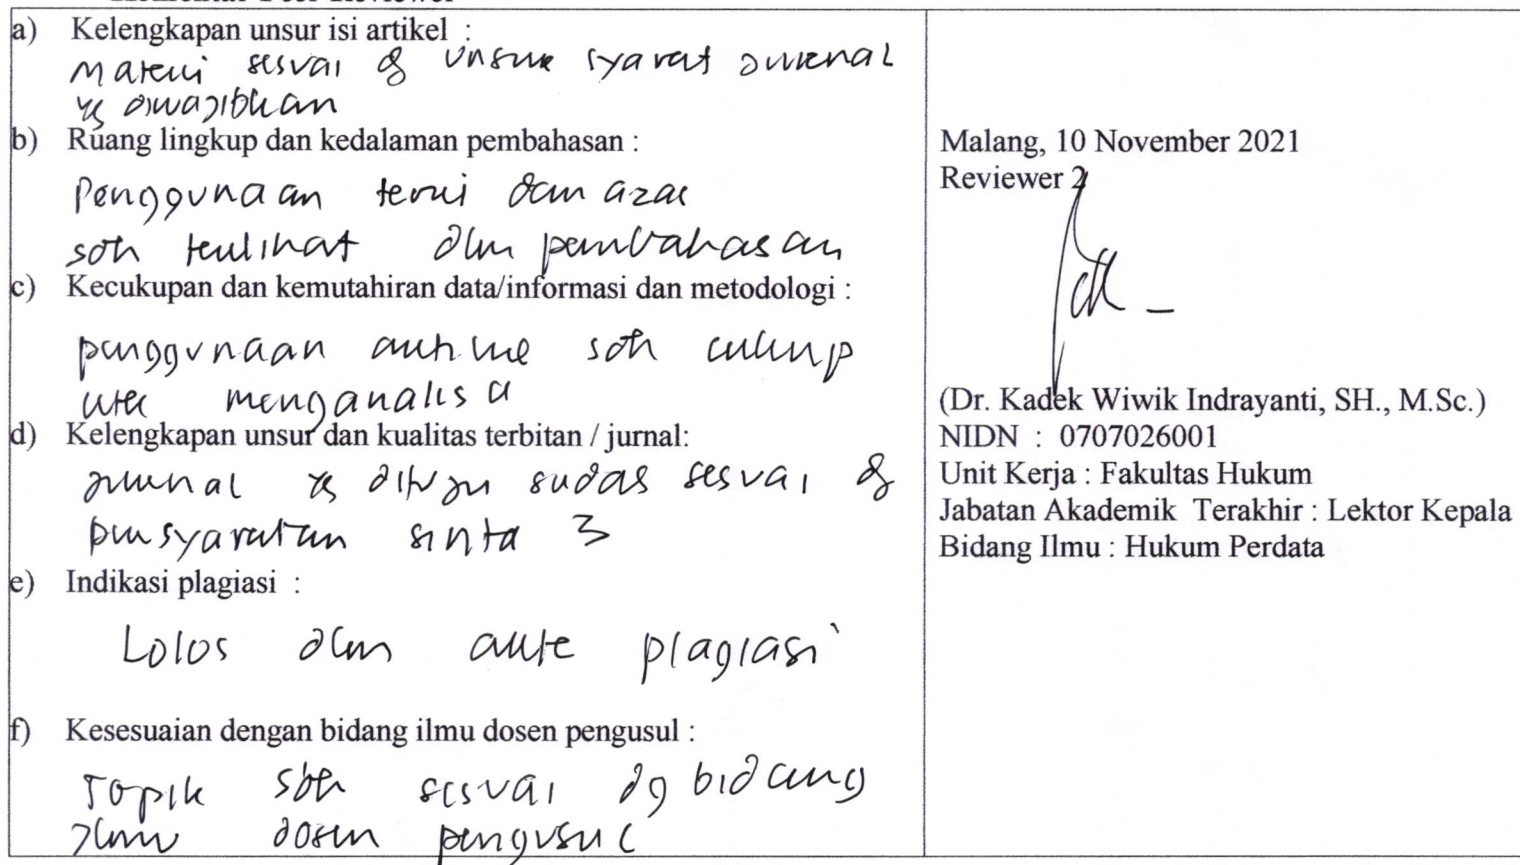 a) Kelengkapan unsur isi artikel :
Materi sesuai dg unsur syarat jurnal
yg diwajibkan
b) Ruang lingkup dan kedalaman pembahasan :
Penggunaan teori dan azas
sdh terlihat dlm pembahasan
c) Kecukupan dan kemutahiran data/informasi dan metodologi :
penggunaan sdh cukup
utk menganalisa
d) Kelengkapan unsur dan kualitas terbitan / jurnal:
jurnal yg dituju sudas sesuai dg
persyaratan sinta 3
e) Indikasi plagiasi :
Lolos dlm plagiasi
f) Kesesuaian dengan bidang ilmu dosen pengusul :
Topik sdh sesuai dg bidang
ilmu dosen pengusul
Malang, 10 November 2021
Reviewer 2
(Dr. Kadek Wiwik Indrayanti, SH., M.Sc.)
NIDN : 0707026001
Unit Kerja : Fakultas Hukum
Jabatan Akademik Terakhir : Lektor Kepala
Bidang Ilmu : Hukum Perdata